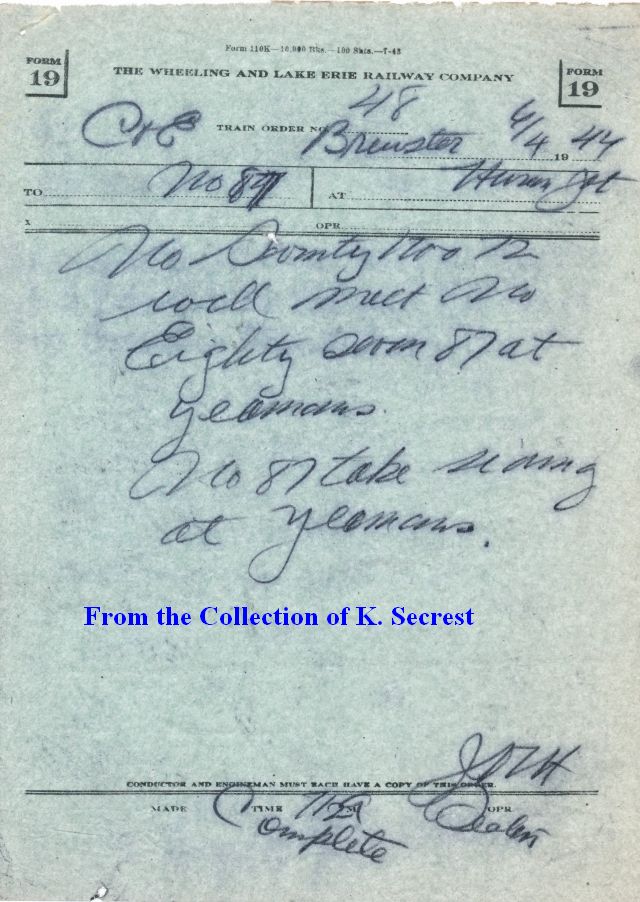 Form 110K—10,000 Bks.—100 Shts.—7-43
FORM 19
THE WHEELING AND LAKE ERIE RAILWAY COMPANY
FORM 19
48
C&E TRAIN ORDER NO. Brewster 6/4 1944
TO No 87 AT Huron Jct
X OPR.
No Seventy two 72
will meet No
Eighty seven 87 at
Yeomans.
No 87 take siding
at Yeomans.
From the Collection of K. Secrest
CONDUCTOR AND ENGINEMAN MUST EACH HAVE A COPY OF THIS ORDER.
MADE Complete TIME M OPR.